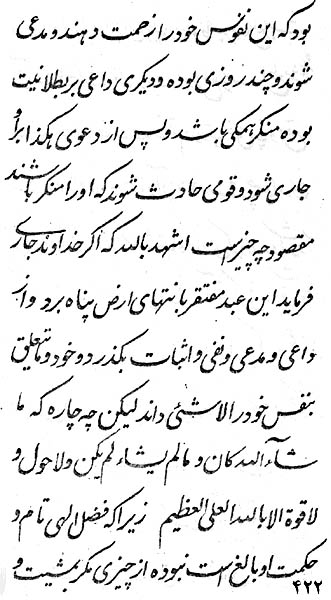 بود که این نفوس خود را زحمت دهند و مدعی
شوند و چند روزی بوده و دیگری داعی بر بطلانیت و
بوده منکر همکی باشد و پس از دعوی هکذا برا و
جاری شود و قومی حادث شوند که او را منکر باشند
مقصود چه چیز است اشهد بالله که اکر خداوند جاری
فرماید این عبد مفتقر بانتهای ارض پناه برد و از
داعی و مدعی و نفی و اثبات بکذرد و خود و ما تعلق
بنفس خود را لاشئی داند لیکن چه چاره که ما
شاء الله کان و ما لم یشاء لم یکن و لا حول و
لا قوة الا بالله العلی العظیم زیرا که فضل الهی تام و
حکمت او بالغ است نبوده از چیزی مکر بمشیت و
۴۲۲